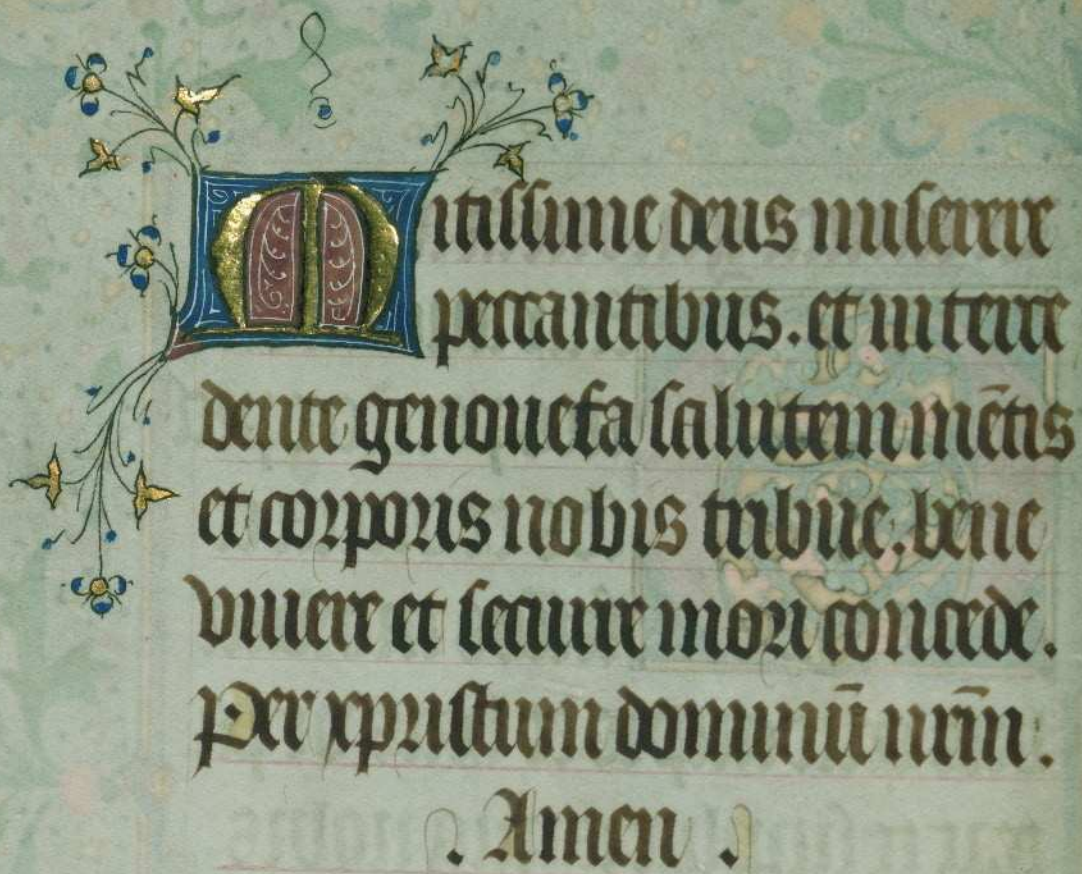 Mitissime deus miserere
peccantibus. et in terce
dente genouefa salutem mētis
et corporis nobis tribue. bene
viuere et secure mori concede.
Per xpristum dominū nr̄m.
. Amen .